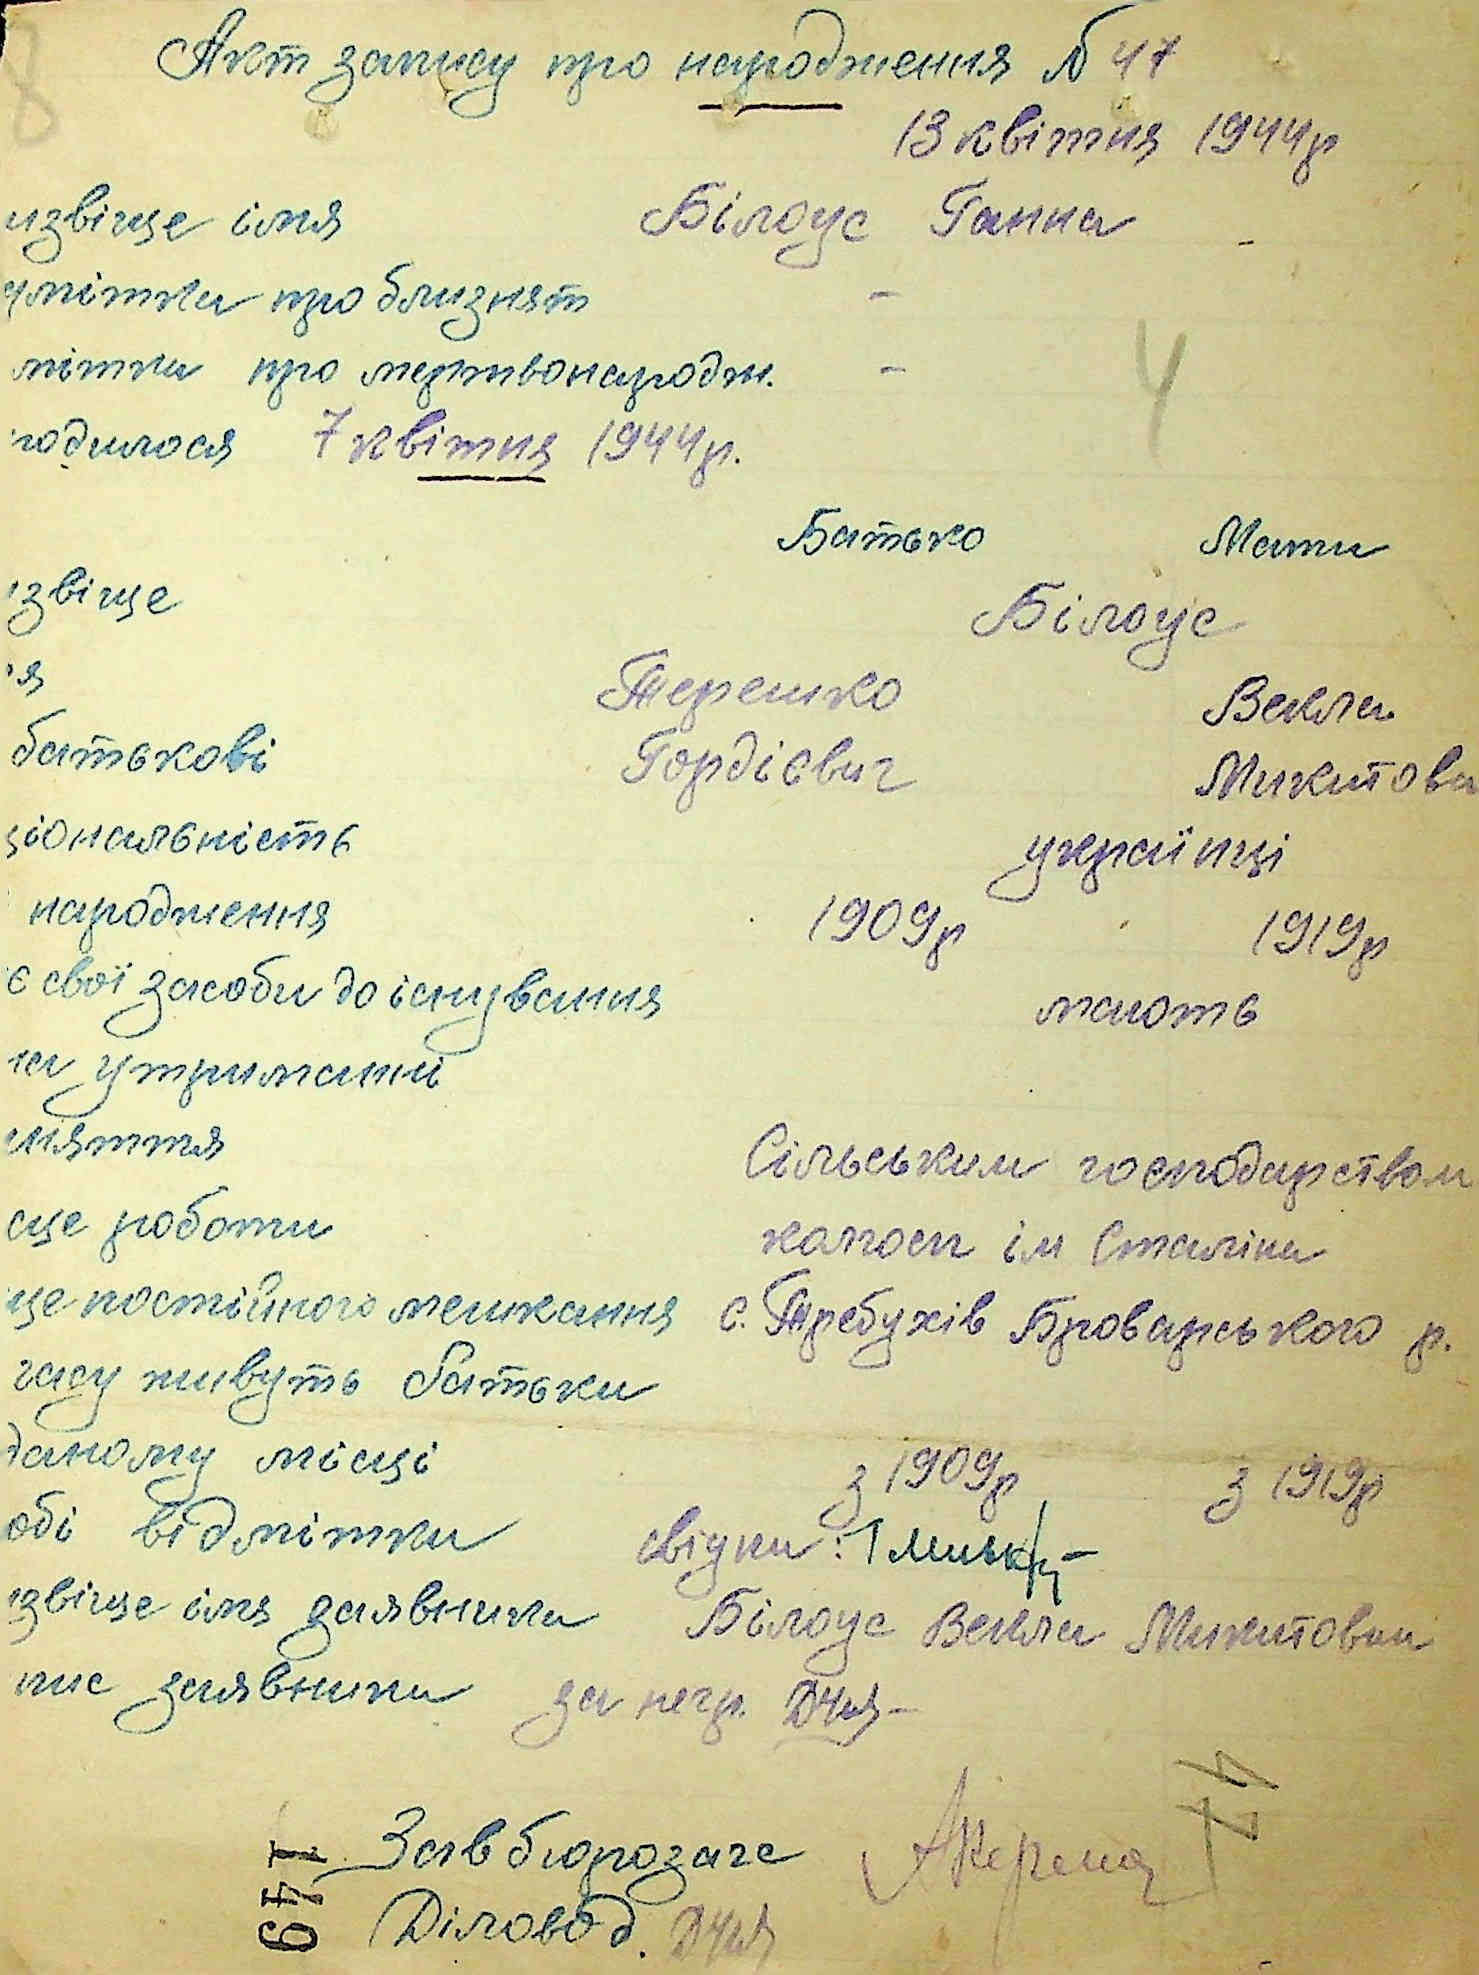 8
Акт запису про народження № 47
13 квітня 1944р
ізвіще імя Білоус Ганна -
мітки про близнят -
мітки про мертвонародж. -
4
родилося 7 квітня 1944р.
Батько Мати
ізвіще Білоус
'я Терешко Векла
батькові Гордієвич Микитовн
ціональність українці
народження 1909р 1919р
є свої засоби до існування мають
на утриманні
няття Сільським господарством
сце роботи колгосп ім Сталіна
це постійного мешкання с. Требухів Броварського р.
часу живуть батьки
даному місці з 1909р з 1919р
обі відмітки свідки: 1
ізвіще імя заявника Білоус Векла Микитовна
пис заявника за негр.
Зав бюрозагс
Діловод.
149
47